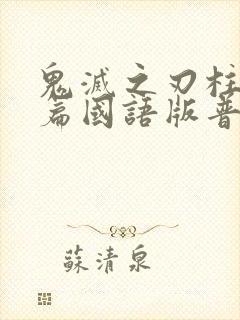 鬼滅之刃柱
篇國語版普
蘇清泉